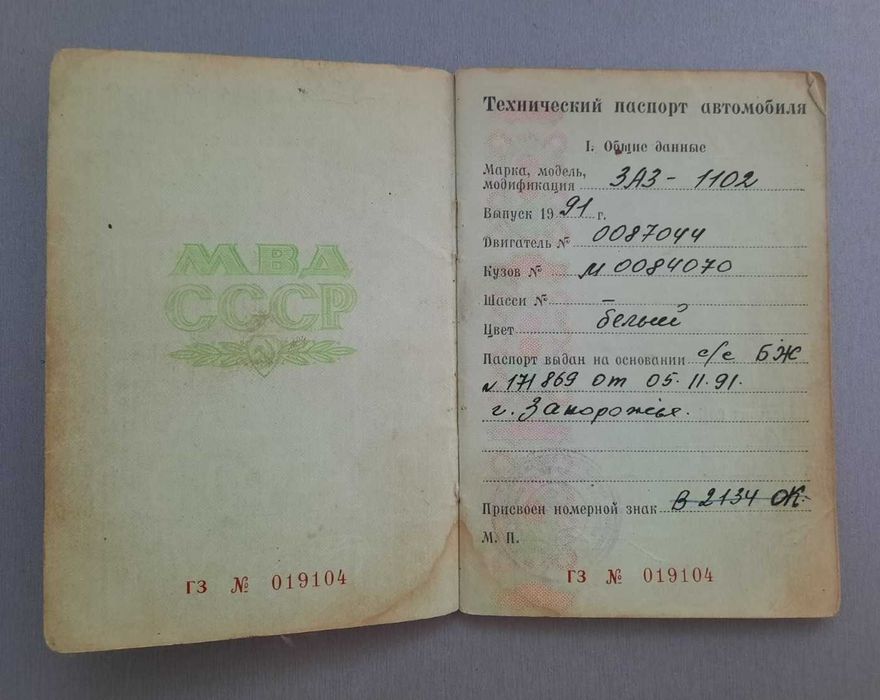 МВД
СССР
ГЗ № 019104
Технический паспорт автомобиля
I. Общие данные
Марка, модель,
модификация ЗАЗ-1102
Выпуск 1991 г.
Двигатель № 0087044
Кузов № М0084070
Шасси № –
Цвет белый
Паспорт выдан на основании с/с БЖ
№ 171869 от 05.11.91.
г. Запорожье.
Присвоен номерной знак В 2134 ОК.
М. П.
ГЗ № 019104